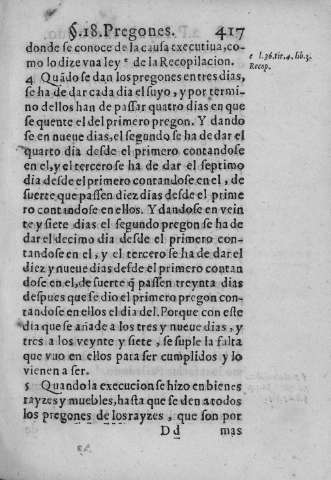 §. 18. Pregones. 417
donde se conoce de la causa executiua, co-
mo lo dize vna ley e de la Recopilacion.
e l. 36. tit. 4. lib. 3.
Recop.
4 Quãdo se dan los pregones en tres dias,
se ha de dar cada dia el suyo, y por termi-
no dellos han de passar quatro dias en que
se quente el del primero pregon. Y dando
se en nueue dias, el segundo se ha de dar el
quarto dia desde el primero contandose
en el, y el tercero se ha de dar el septimo
dia desde el primero contandose en el, de
suerte que passen diez dias desde el prime
ro contandose en ellos. Y dandose en vein
te y siete dias el segundo pregon se ha de
dar el decimo dia desde el primero con-
tandose en el, y el tercero se ha de dar el
diez y nueue dias desde el primero contan
dose en el, de suerte q̃ passen treynta dias
despues que se dio el primero pregon con-
tandose en ellos el dia del. Porque con este
dia que se añade a los tres y nueue dias, y
tres a los veynte y siete, se suple la falta
que vuo en ellos para ser cumplidos y lo
vienen a ser.
5 Quando la execucion se hizo en bienes
rayzes y muebles, hasta que se den a todos
los pregones de los rayzes, que son por
Dd mas